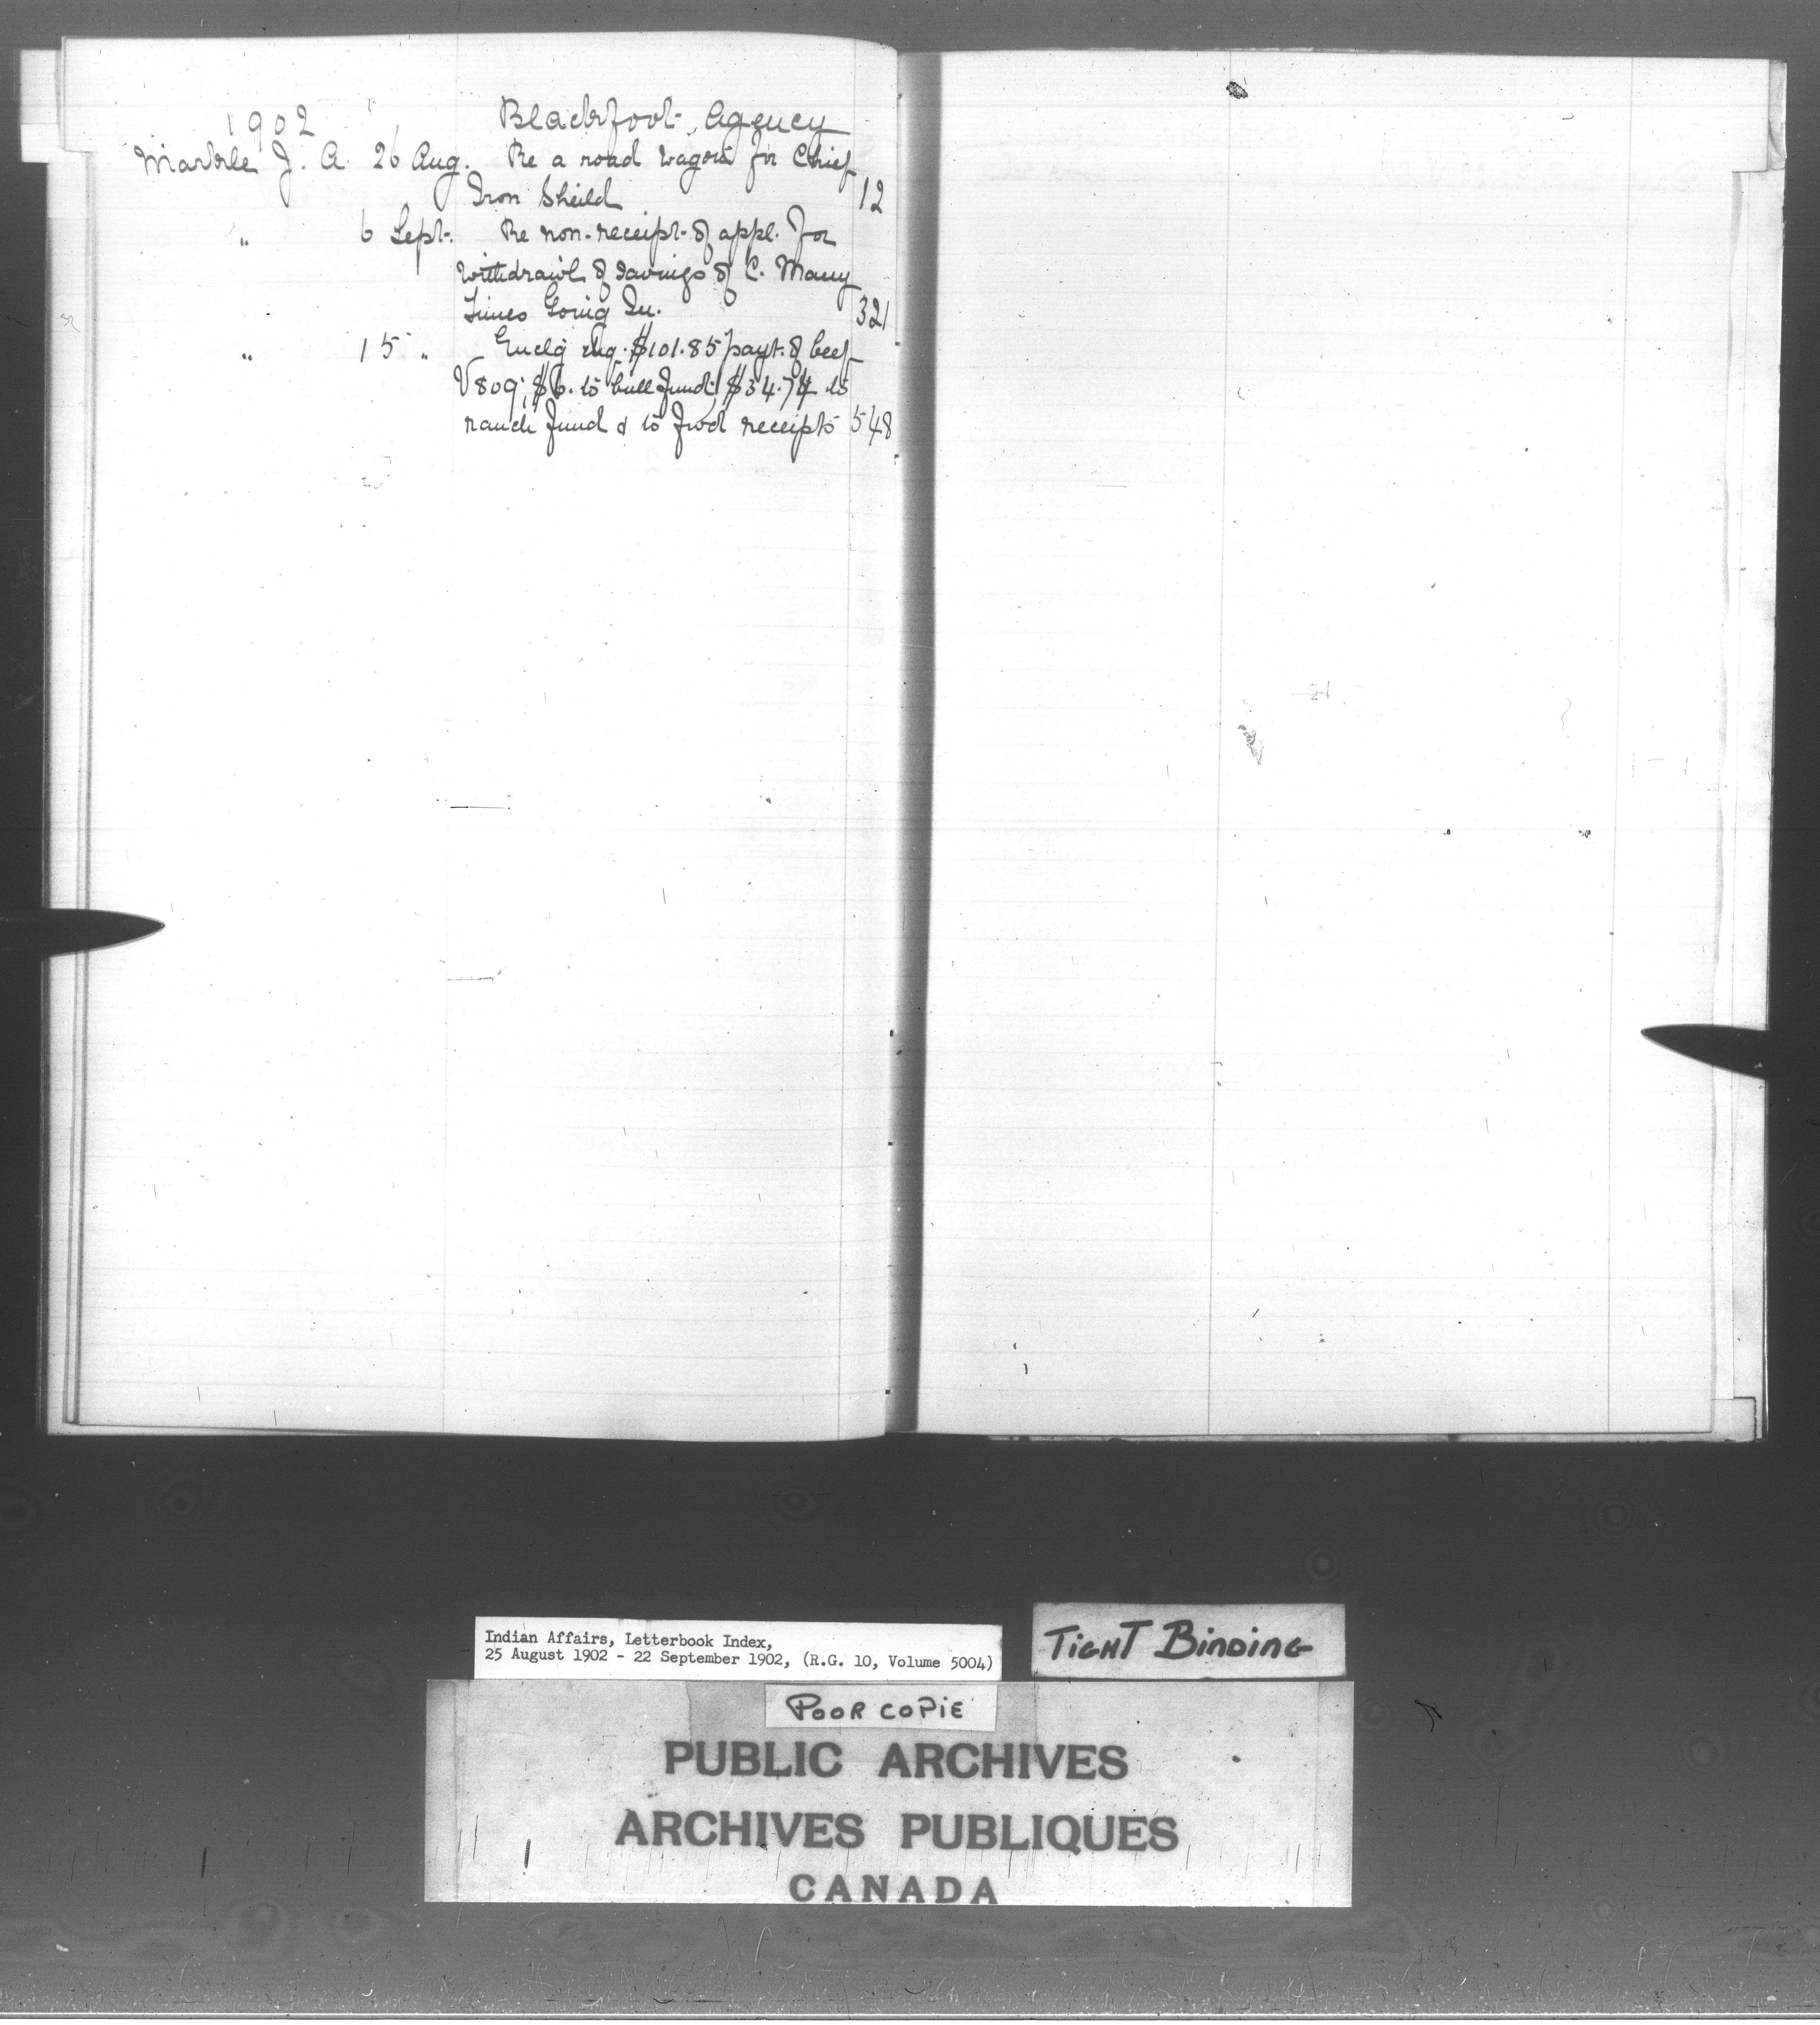 1902 Blackfoot Agency
Markle J. A. 26 Aug. Re a road wagon for Chief
Iron Sheild 12
" 6 Sept. Re non-receipt of appl. for
withdrawl of savings of C. Many
Times Going In. 321
" 15 " Enclg chq. $101.85 payt. of beef
V809; $6. to bull fund; $34.74 to
ranch fund & to fwd receipts 548
Indian Affairs, Letterbook Index,
25 August 1902 - 22 September 1902, (R.G. 10, Volume 5004)
TIGHT BINDING
POOR COPIE
PUBLIC ARCHIVES
ARCHIVES PUBLIQUES
CANADA